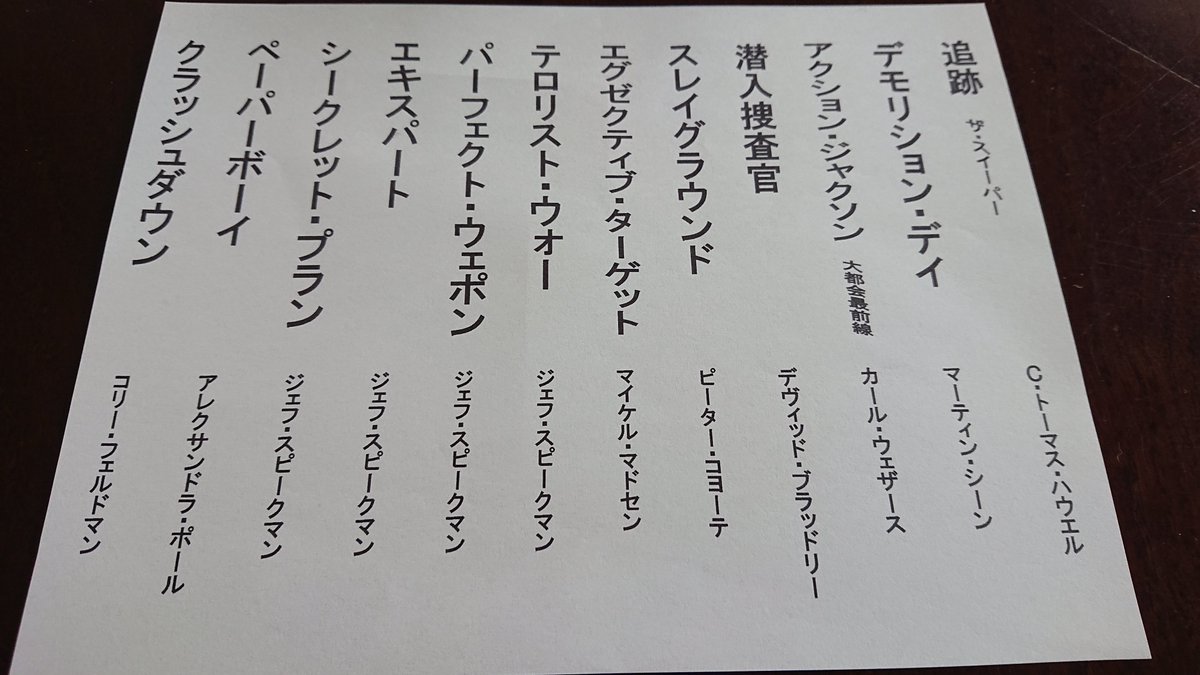 追跡 ザ・スイーパー C・トーマス・ハウエル
デモリション・デイ マーティン・シーン
アクション・ジャクソン 大都会最前線 カール・ウェザース
潜入捜査官 デヴィッド・ブラッドリー
スレイグラウンド ピーター・コヨーテ
エグゼクティブ・ターゲット マイケル・マドセン
テロリスト・ウォー ジェフ・スピークマン
パーフェクト・ウェポン ジェフ・スピークマン
エキスパート ジェフ・スピークマン
シークレット・プラン ジェフ・スピークマン
ペーパーボーイ アレクサンドラ・ポール
クラッシュダウン コリー・フェルドマン